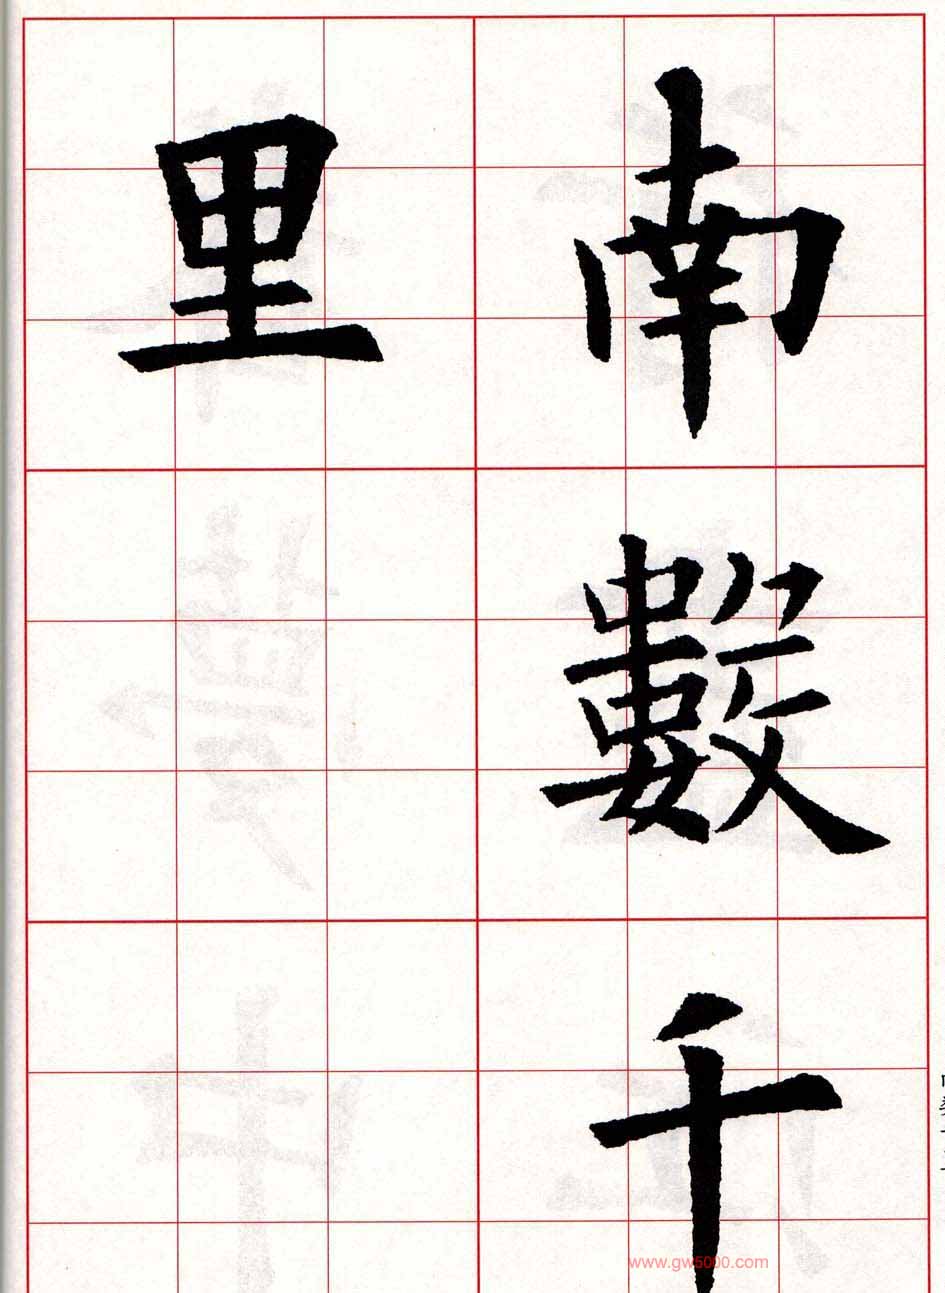 南數千
里
www.gw5000.com